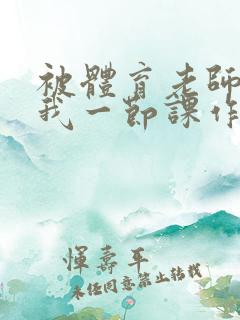 被體育老師
我一節課作
惲壽平
未任同意禁止转载